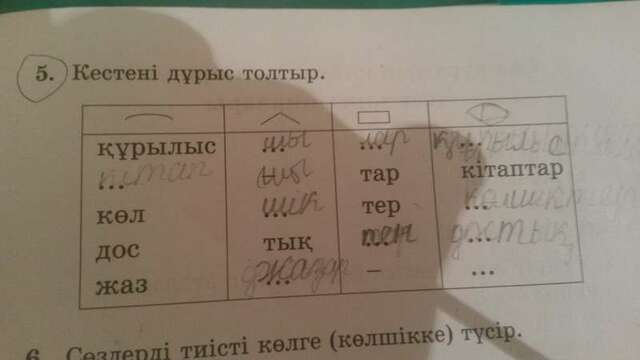 5. Кестені дұрыс толтыр.
құрылыс шы лар құрылыс
кітап шы тар кітаптар
көл шік тер көлшіктер
дос тық пен достық
жаз жазар – ...
6. Сөздерді тиісті көлге (көлшікке) түсір.